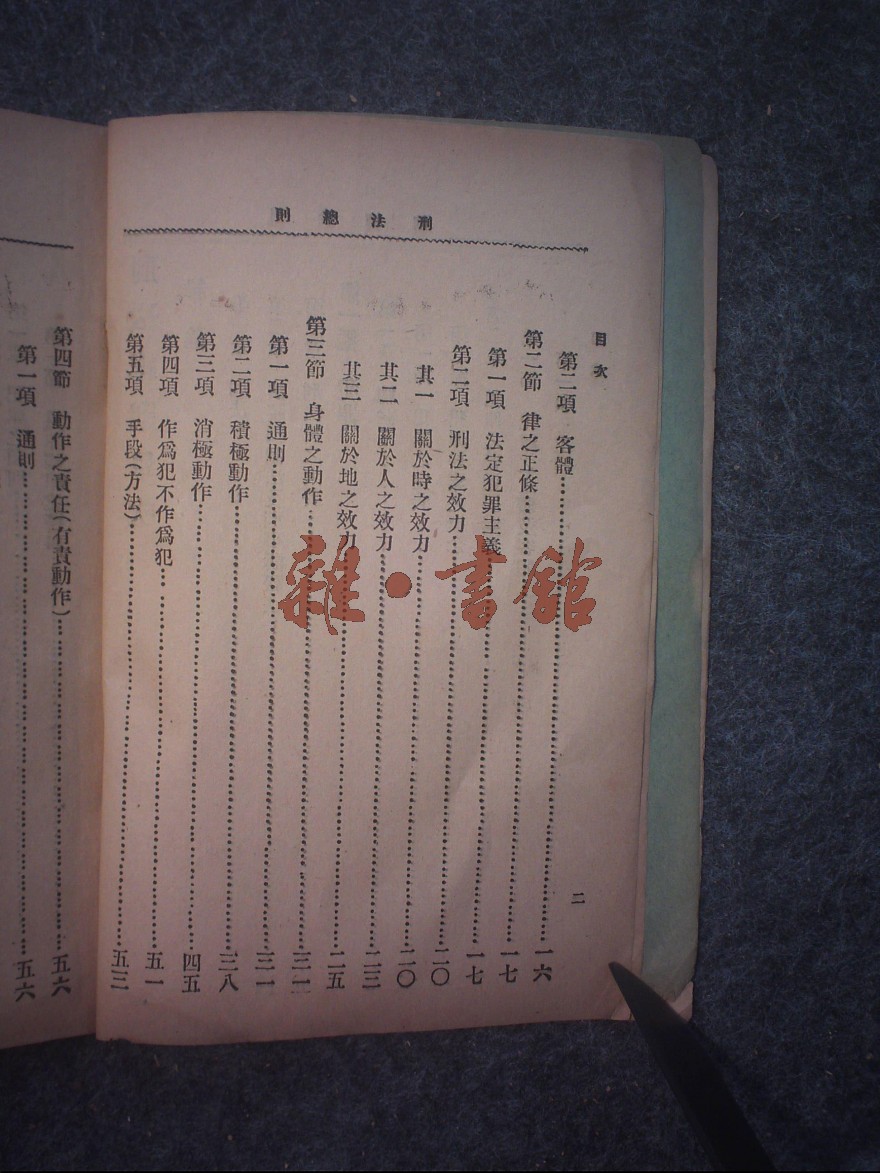 刑法總則
目次
二
第二項 客體⋯⋯一六
第二節 律之正條⋯⋯一七
第一項 法定犯罪主義⋯⋯一七
第二項 刑法之效力⋯⋯二〇
其一 關於時之效力⋯⋯二〇
其二 關於人之效力⋯⋯二三
其三 關於地之效力⋯⋯二五
第三節 身體之動作⋯⋯三一
第一項 通則⋯⋯三一
第二項 積極動作⋯⋯三八
第三項 消極動作⋯⋯四五
第四項 作爲犯不作爲犯⋯⋯五一
第五項 手段(方法)⋯⋯五三
第四節 動作之責任(有責動作)⋯⋯五六
第一項 通則⋯⋯五六
雜·書館